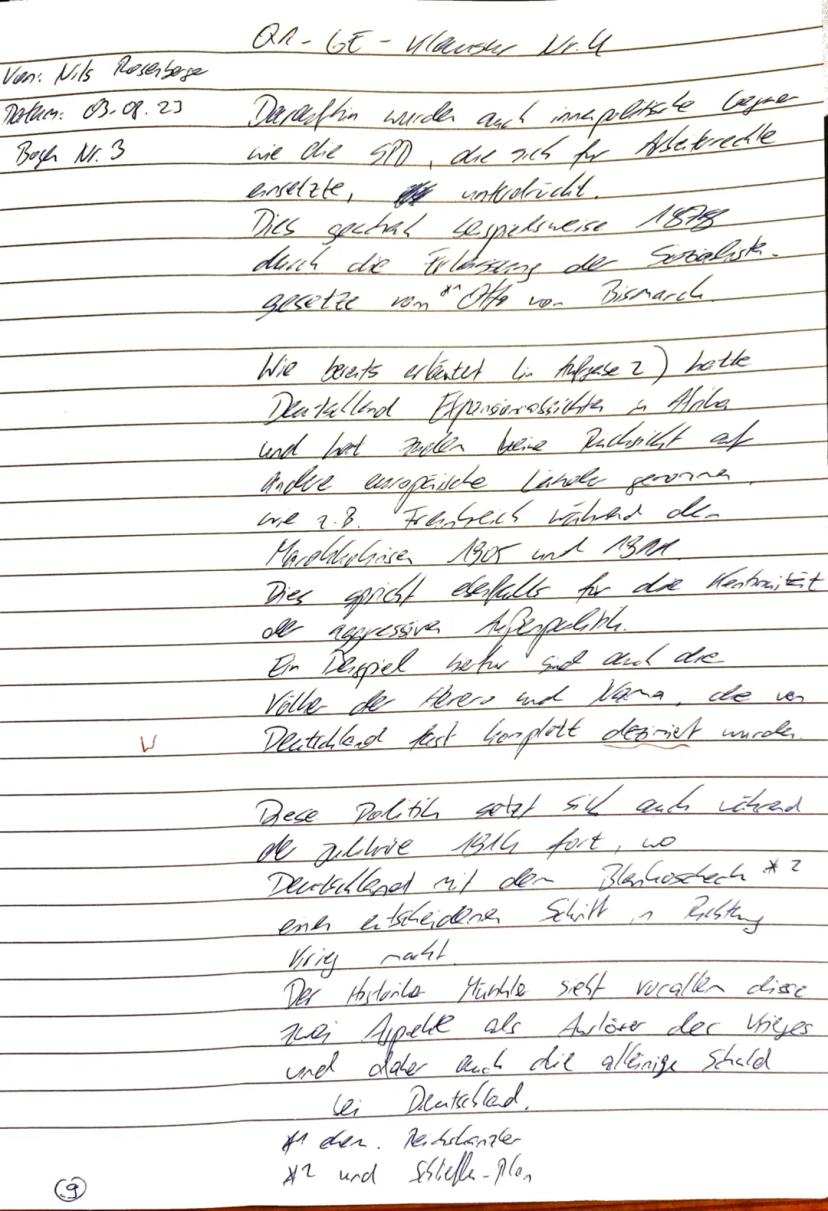 Q1 - GE - Klausur Nr. 4
Von: Nils Rosenberge
Datum: 03.08.23
Bogen Nr. 3
Daraufhin wurden auch innenpolitische Gegner
wie die SPD, die sich für Arbeiterrechte
einsetzte, unterdrückt.
Dies geschah beispielsweise 1878
durch die Erlassung der Sozialisten-
gesetze vom *1 Otto von Bismarck.
Wie bereits erläutert (in Aufgabe 2) hatte
Deutschland Expansionsabsichten in Afrika
und hat zudem keine Rücksicht auf
andere europäische Länder genommen,
wie z.B. Frankreich während den
Marokkokrisen 1905 und 1911
Dies spricht ebenfalls für die Kontinuität
der aggressiven Außenpolitik.
Ein Beispiel sind auch die
Völker der Herero und Nama, die von
W Deutschland fast komplett dezimiert wurden.
Diese Politik setzt sich auch während
der 1914 fort, wo
Deutschland mit dem Blankoscheck *2
einen entscheidenen Schritt in Richtung
Krieg macht.
Der Historiker Münkler sieht vorallem diese
zwei Aspekte als Auslöser des Krieges
und daher auch die alleinige Schuld
bei Deutschland.
*1 dem. Reichskanzler
*2 und Schlieffen-Plan
9